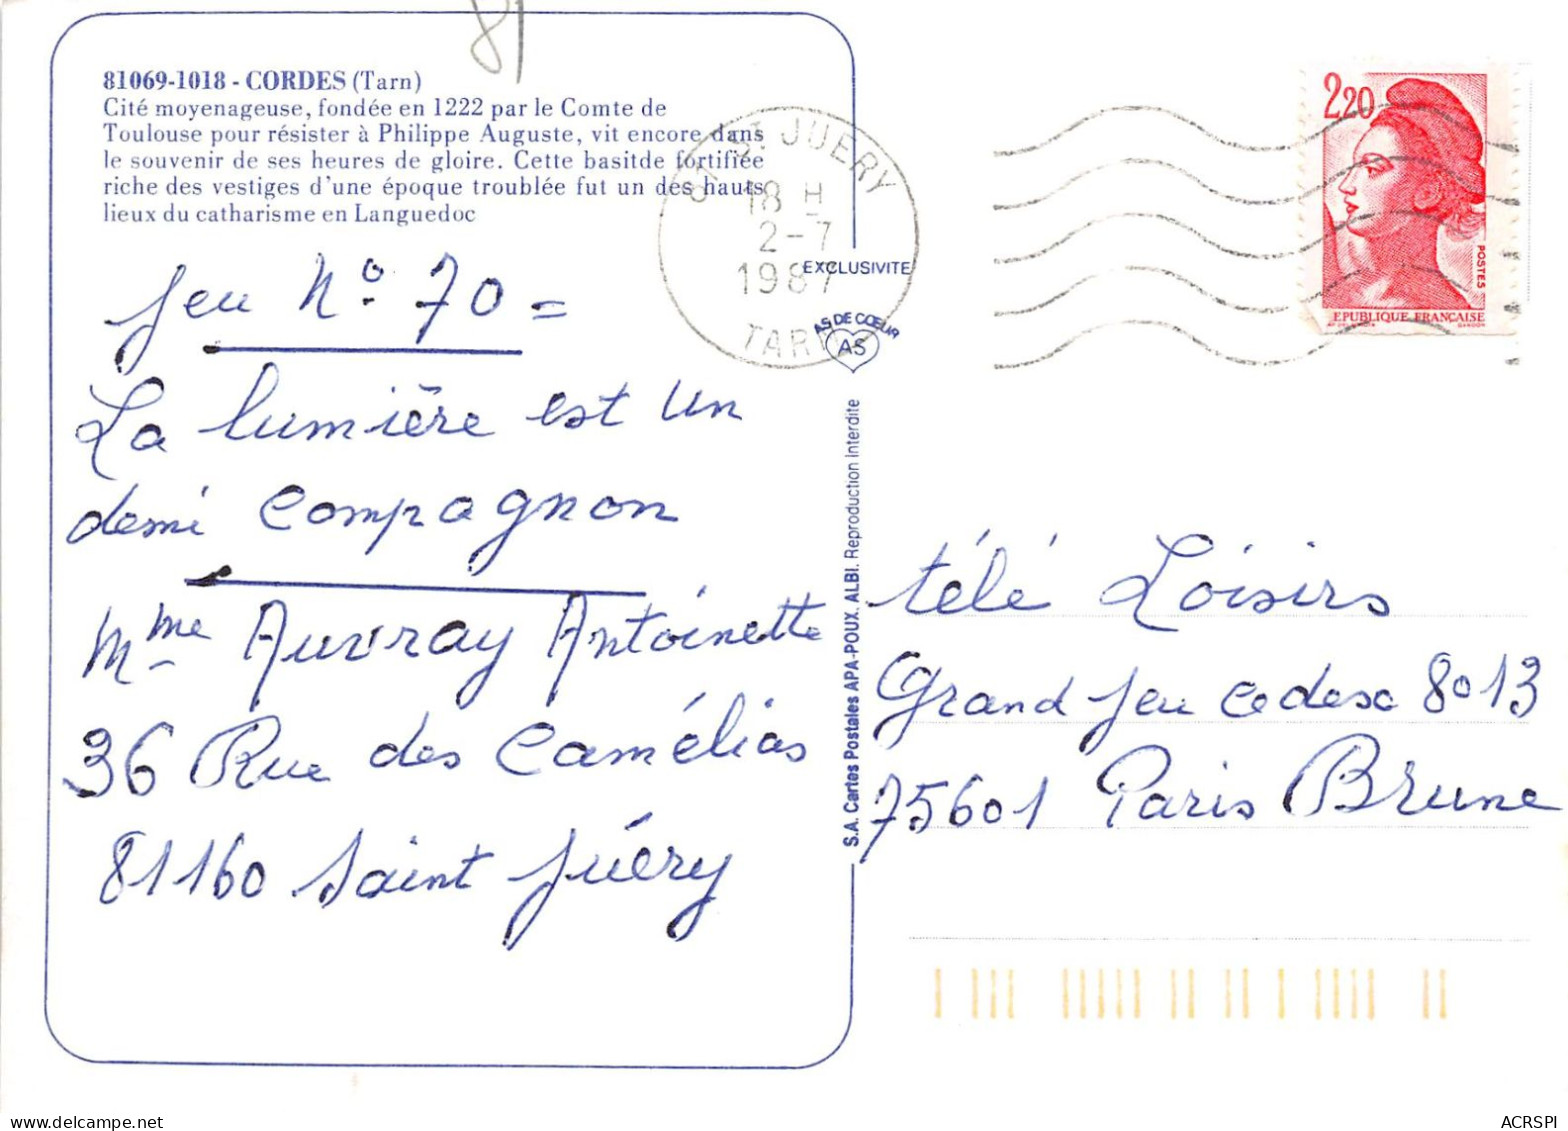 81
81069-1018 - CORDES (Tarn)
Cité moyenageuse, fondée en 1222 par le Comte de
Toulouse pour résister à Philippe Auguste, vit encore dans
le souvenir de ses heures de gloire. Cette basitde fortifiée
riche des vestiges d'une époque troublée fut un des hauts
lieux du catharisme en Languedoc
Jeu N° 70 =
La lumière est un
demi compagnon
Mme Auvray Antoinette
36 Rue des Camélias
81160 Saint Juéry
81 ST JUERY
18 H
2-7
1987
TARN
EXCLUSIVITE
AS DE CŒUR
AS
S.A. Cartes Postales APA-POUX. ALBI. Reproduction Interdite
2,20
POSTES
EPUBLIQUE FRANÇAISE
GANDON
télé Loisirs
Grand Jeu cedex 8013
75601 Paris Brune
ACRSPI